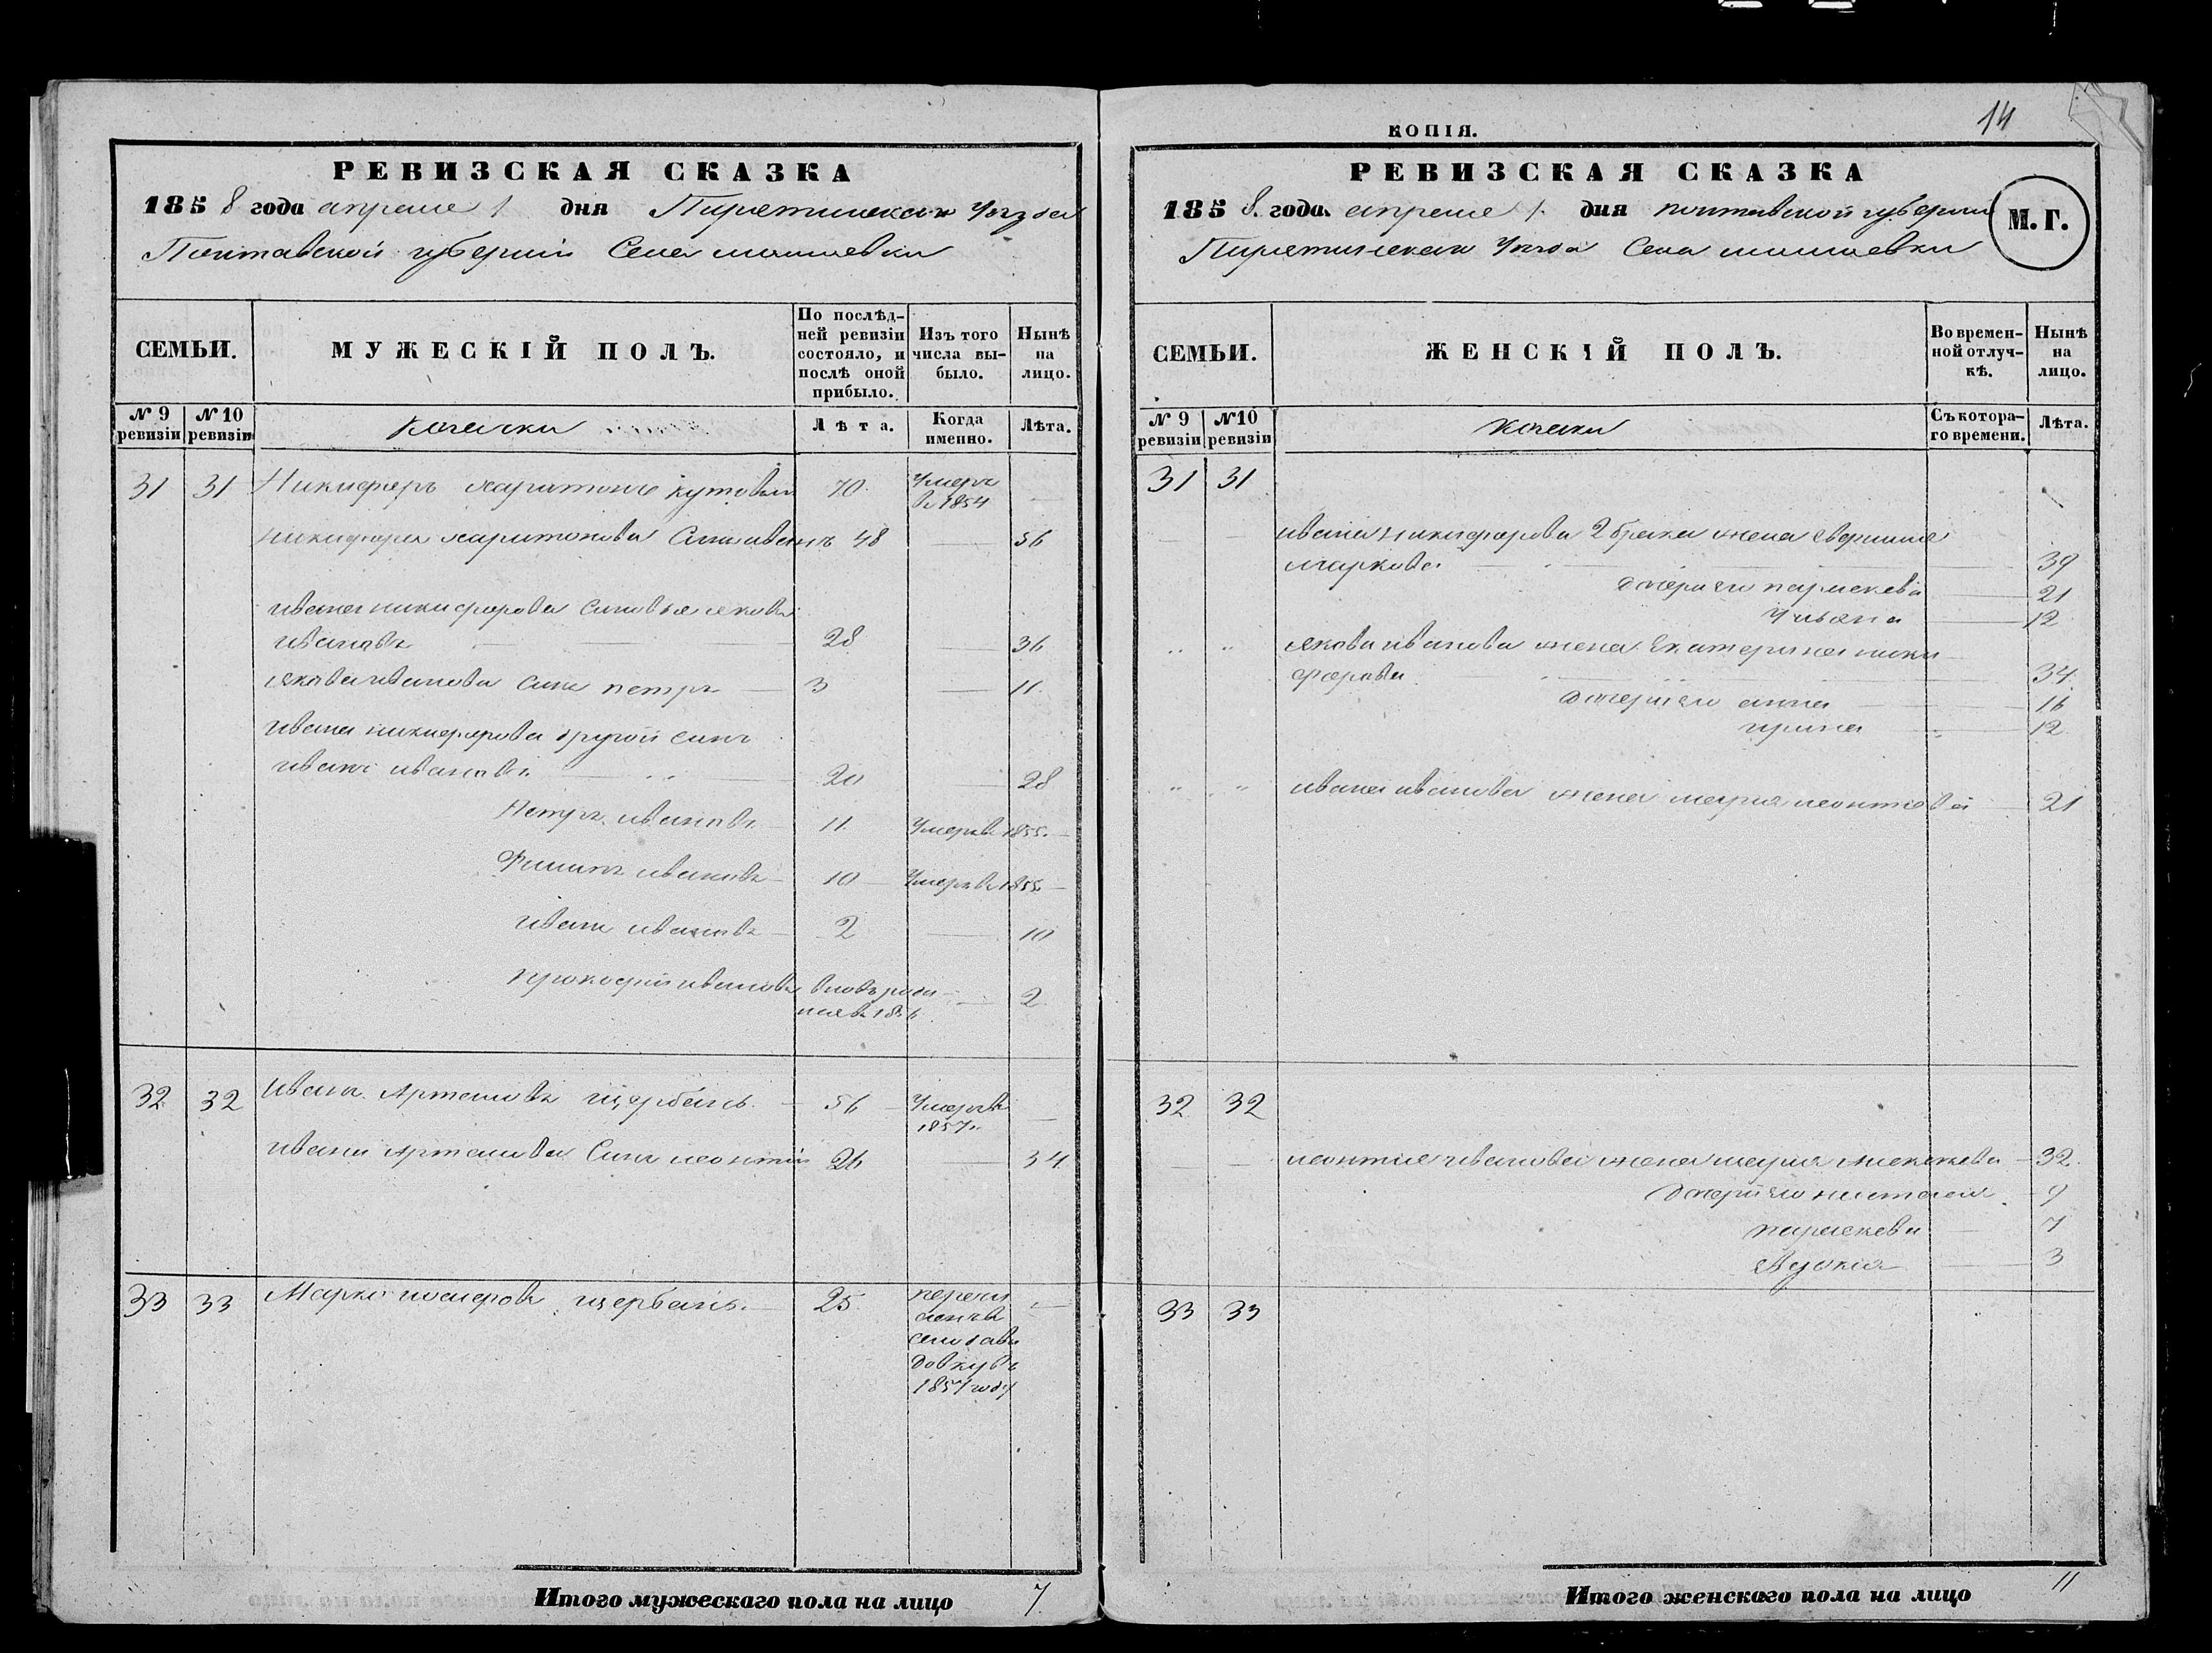 РЕВИЗСКАЯ СКАЗКА
1858 года апреля 1 дня Пирятинскаго Уезда
Полтавской губернии Села
СЕМЬИ.
МУЖЕСКІЙ ПОЛЪ.
По послѣд-
ней ревизіи
состояло, и
послѣ оной
прибыло.
Изъ того
числа вы-
было.
Нынѣ
на
лицо.
№ 9
ревизіи
№ 10
ревизіи
козачки
Лѣта.
Когда
именно.
Лѣта.
31 31 Никифоръ Харитоновъ Кутовый 70 Умеръ
въ 1854 —
Никифора Харитонова Сынъ иванъ 48 — 56
ивана никифорова Сыновья яковъ
ивановъ — 28 — 36
якова иванова Сынъ петръ — 3 — 11
ивана никифорова другой сынъ
иванъ ивановъ — 20 — 28
Петръ ивановъ — 11 Умеръ в 1855 —
Филипъ ивановъ — 10 — Умеръ в 1855 —
иванъ ивановъ — 2 — 10
прокофий ивановъ вновь роди
лся в 1856 — 2
32 32 иванъ Артемовъ щербань — 56 — Умеръ в
1857 —
ивана Артемова Сынъ леонтий 26 — 34
33 33 Марко щербань. — 25
1857 году —
Итого мужескаго пола на лицо 7
14
КОПІЯ.
РЕВИЗСКАЯ СКАЗКА
1858. года. апреля 1. дня полтавской губернии
Пирятинскаго Уезда Села
М.Г.
СЕМЬИ.
ЖЕНСКІЙ ПОЛЪ.
Во времен-
ной отлуч-
кѣ.
Нынѣ
на
лицо.
№ 9
ревизіи
№10
ревизіи
Съ котора-
го времени.
Лѣта.
31 31
ивана никифорова 2 брака жена
маркова — 39
дочери его параскева — 21
Ульяна — 12
якова иванова жена Екатерина ники
форова — 34
дочери его анна — 16
ирина — 12
ивана иванова жена мария леонтиева 21
32 32
леонтия иванова жена мария — 32
дочери его наталия — 9
параскева — 7
— 3
33 33
Итого женскаго пола на лицо 11